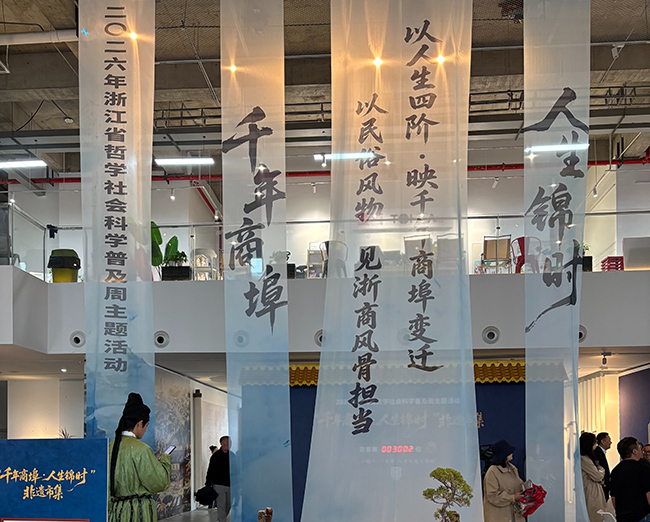 二〇二六年浙江省哲学社会科学普及周主题活动
千年商埠
以人生四阶·映千年商埠变迁
以民俗风物 见浙商风骨担当
人生锦时
“千年商埠·人生锦时”
非遗市集
“千年商埠·人生锦时”非遗市集